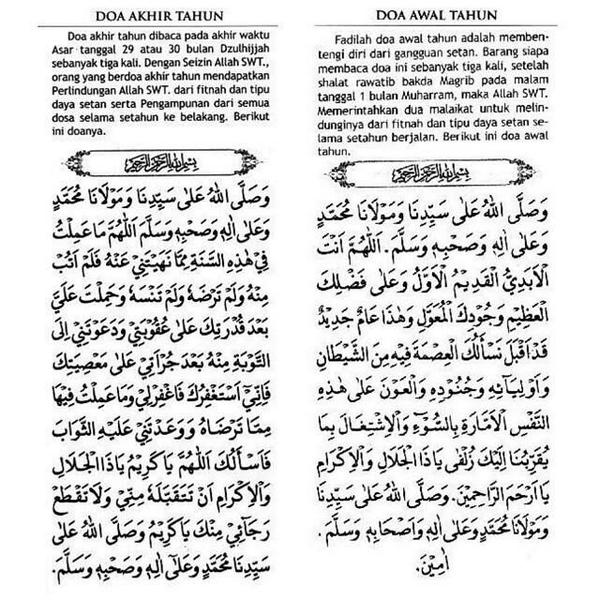 DOA AKHIR TAHUN
Doa akhir tahun dibaca pada akhir waktu
Asar tanggal 29 atau 30 bulan Dzulhijjah
sebanyak tiga kali. Dengan Seizin Allah SWT.,
orang yang berdoa akhir tahun mendapatkan
Perlindungan Allah SWT. dari fitnah dan tipu
daya setan serta Pengampunan dari semua
dosa selama setahun ke belakang. Berikut
ini doanya.
بِسْمِ اللهِ الرَّحْمٰنِ الرَّحِيْمِ
وَصَلَّى اللهُ عَلَى سَيِّدِنَا وَمَوْلَانَا مُحَمَّدٍ
وَعَلَى اٰلِهِ وَصَحْبِهِ وَسَلَّمَ اَللّٰهُمَّ مَا عَمِلْتُ
فِيْ هٰذِهِ السَّنَةِ مِمَّا نَهَيْتَنِيْ عَنْهُ فَلَمْ اَتُبْ
مِنْهُ وَلَمْ تَرْضَهُ وَلَمْ تَنْسَهُ وَحَمِلْتَ عَلَيَّ
بَعْدَ قُدْرَتِكَ عَلَى عُقُوْبَتِيْ وَدَعَوْتَنِيْ اِلَى
التَّوْبَةِ مِنْهُ بَعْدَ جُرْاَتِيْ عَلَى مَعْصِيَتِكَ
فَاِنِّيْ اَسْتَغْفِرُكَ فَاغْفِرْلِيْ وَمَا عَمِلْتُ فِيْهَا
مِمَّا تَرْضَاهُ وَوَعَدْتَنِيْ عَلَيْهِ الثَّوَابَ
فَاَسْأَلُكَ اَللّٰهُمَّ يَا كَرِيْمُ يَا ذَا الْجَلَالِ
وَالْاِكْرَامِ اَنْ تَتَقَبَّلَهُ مِنِّيْ وَلَا تَقْطَعْ
رَجَائِيْ مِنْكَ يَا كَرِيْمُ وَصَلَّى اللهُ عَلَى
سَيِّدِنَا مُحَمَّدٍ وَعَلَى اٰلِهِ وَصَحْبِهِ وَسَلَّمَ.
DOA AWAL TAHUN
Fadilah doa awal tahun adalah memben-
tengi diri dari gangguan setan. Barang siapa
membaca doa ini sebanyak tiga kali, setelah
shalat rawatib bakda Magrib pada malam
tanggal 1 bulan Muharram, maka Allah SWT.
Memerintahkan dua malaikat untuk melin-
dunginya dari fitnah dan tipu daya setan se-
lama setahun berjalan. Berikut ini doa awal
tahun.
بِسْمِ اللهِ الرَّحْمٰنِ الرَّحِيْمِ
وَصَلَّى اللهُ عَلَى سَيِّدِنَا وَمَوْلَانَا مُحَمَّدٍ
وَعَلَى اٰلِهِ وَصَحْبِهِ وَسَلَّمَ. اَللّٰهُمَّ اَنْتَ
الْاَبَدِيُّ الْقَدِيْمُ الْاَوَّلُ وَعَلَى فَضْلِكَ
الْعَظِيْمِ وَجُوْدِكَ الْمُعَوَّلِ وَهٰذَا عَامٌ جَدِيْدٌ
قَدْ اَقْبَلَ نَسْأَلُكَ الْعِصْمَةَ فِيْهِ مِنَ الشَّيْطَانِ
وَاَوْلِيَائِهِ وَجُنُوْدِهِ وَالْعَوْنَ عَلَى هٰذِهِ
النَّفْسِ الْاَمَّارَةِ بِالسُّوْءِ وَالْاِشْتِغَالَ بِمَا
يُقَرِّبُنَا اِلَيْكَ زُلْفَى يَا ذَا الْجَلَالِ وَالْاِكْرَامِ
يَا اَرْحَمَ الرَّاحِمِيْنَ. وَصَلَّى اللهُ عَلَى سَيِّدِنَا
وَمَوْلَانَا مُحَمَّدٍ وَعَلَى اٰلِهِ وَاَصْحَابِهِ وَسَلَّمَ.
اٰمِيْنَ.